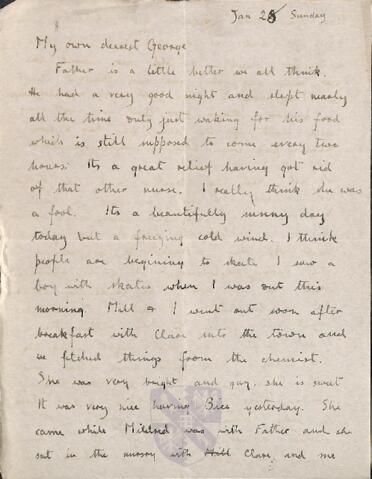 Jan 28 Sunday
My own dearest George
Father is a little better we all think.
He had a very good night and slept nearly
all the time only just waking for his food
which is still supposed to come every two
hours. Its a great relief having got rid
of that other nurse. I really think she was
a fool. Its a beautifully sunny day
today but a freezing cold wind. I think
people are begining to skate I saw a
boy with skates when I was out this
morning. Mill & I went out soon after
breakfast with Clare into the town and
we fetched things from the chemist.
She was very bright and gay. she is sweet
It was very nice having Bice yesterday. She
came while Mildred was with Father and
sat in the nursery with Clare and me